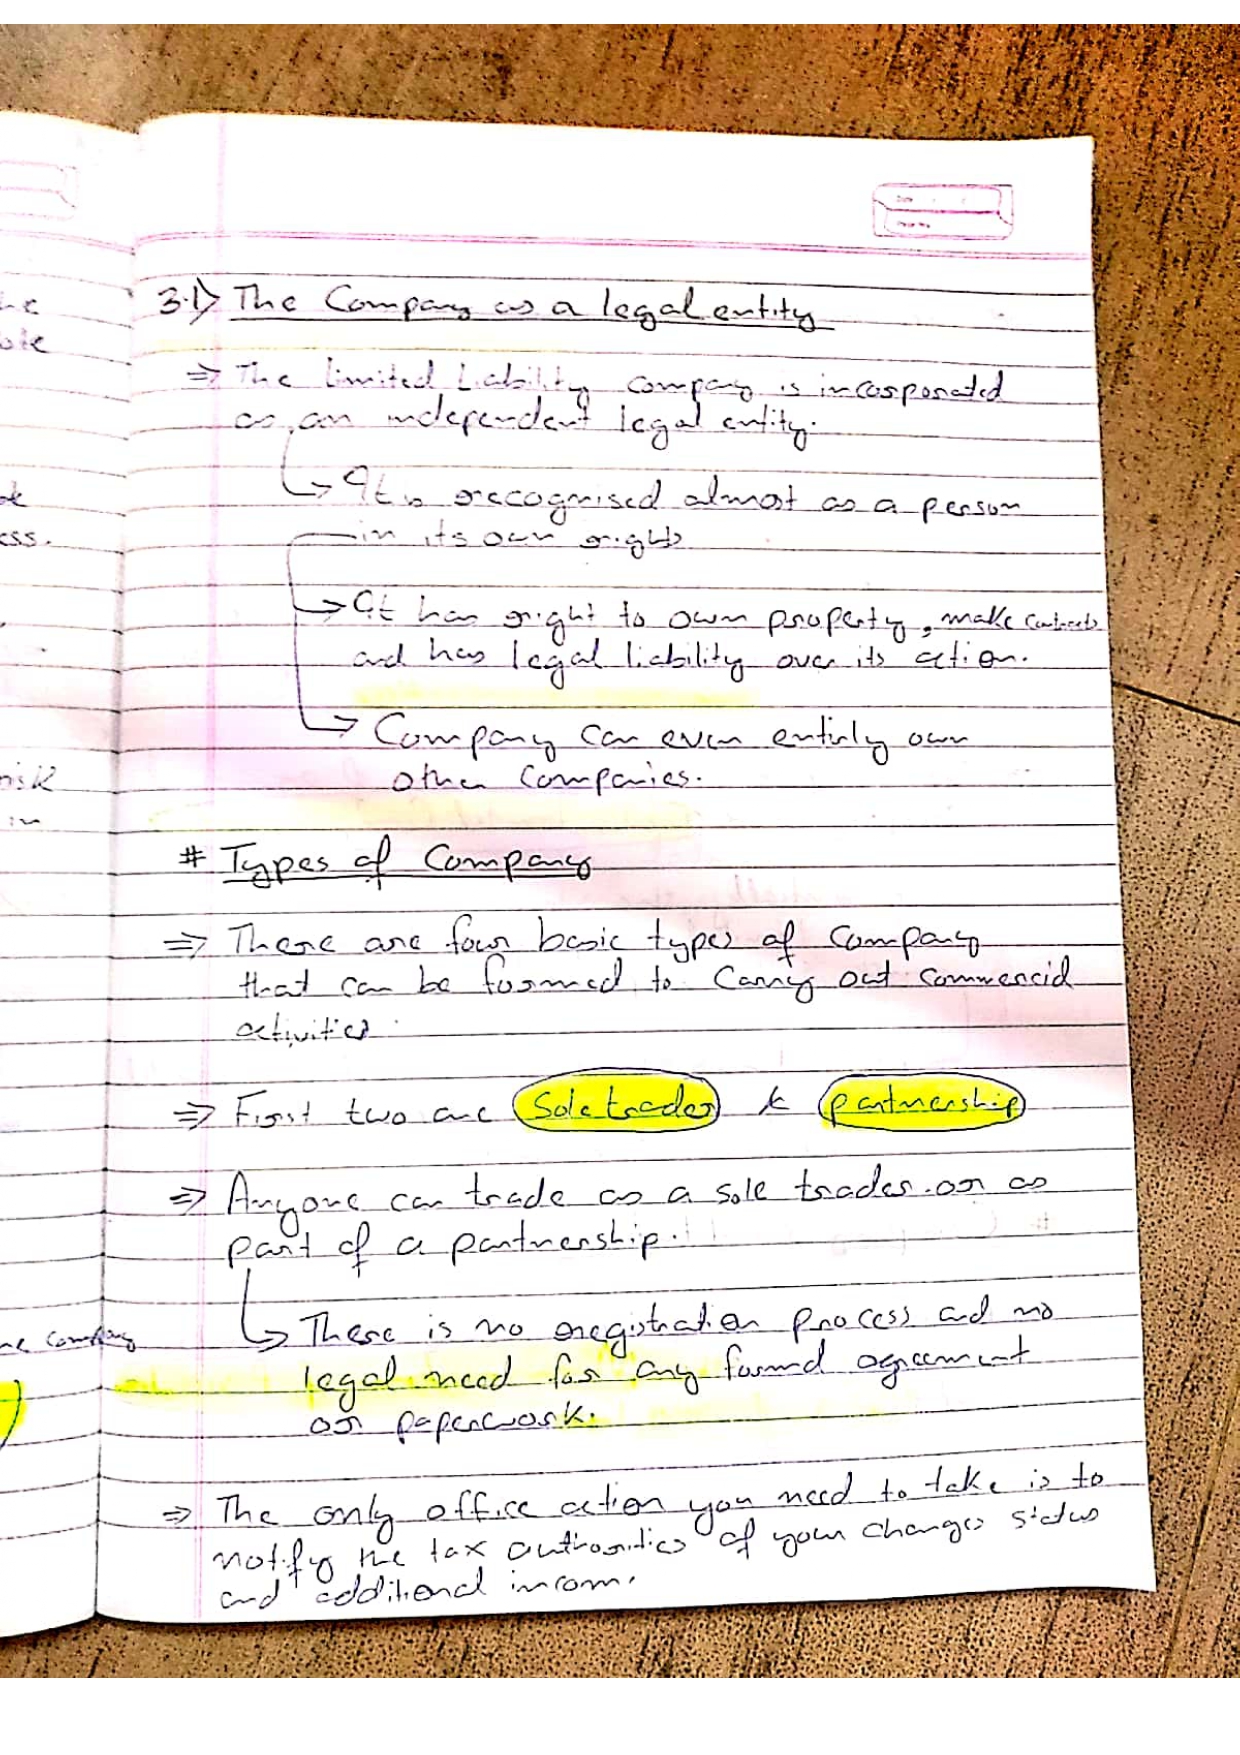 3.1) The Company as a legal entity
⇒ The limited Liability company is incorporated
as an independent legal entity.
↳ It is recognised almost as a person
in its own right
→ It has right to own property, make contracts
and has legal liability over its action.
→ Company can even entirly own
other companies.
# Types of Company
⇒ There are four basic types of Company
that can be formed to carry out commercial
activities.
⇒ First two are Sole trader & partnership
⇒ Anyone can trade as a sole trader or as
part of a partnership.
↳ There is no registration process and no
legal need for any formal agreement
or paperwork.
⇒ The only office action you need to take is to
notify the tax authorities of your changes status
and additional incom.
ote
ess.
risk
in
company